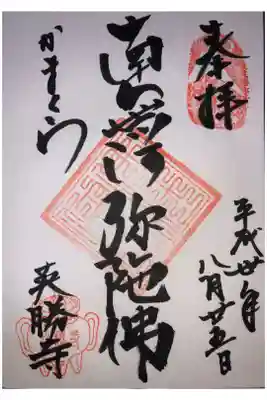 奉拝
平成年八月廿五日
南無阿弥陀佛
かまくら
英勝寺